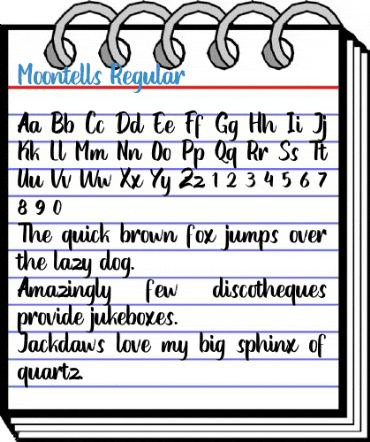 Moontells Regular
Aa Bb Cc Dd Ee Ff Gg Hh Ii Jj
Kk Ll Mm Nn Oo Pp Qq Rr Ss Tt
Uu Vv Ww Xx Yy Zz 1 2 3 4 5 6 7
8 9 0
The quick brown fox jumps over
the lazy dog.
Amazingly few discotheques
provide jukeboxes.
Jackdaws love my big sphinx of
quartz.